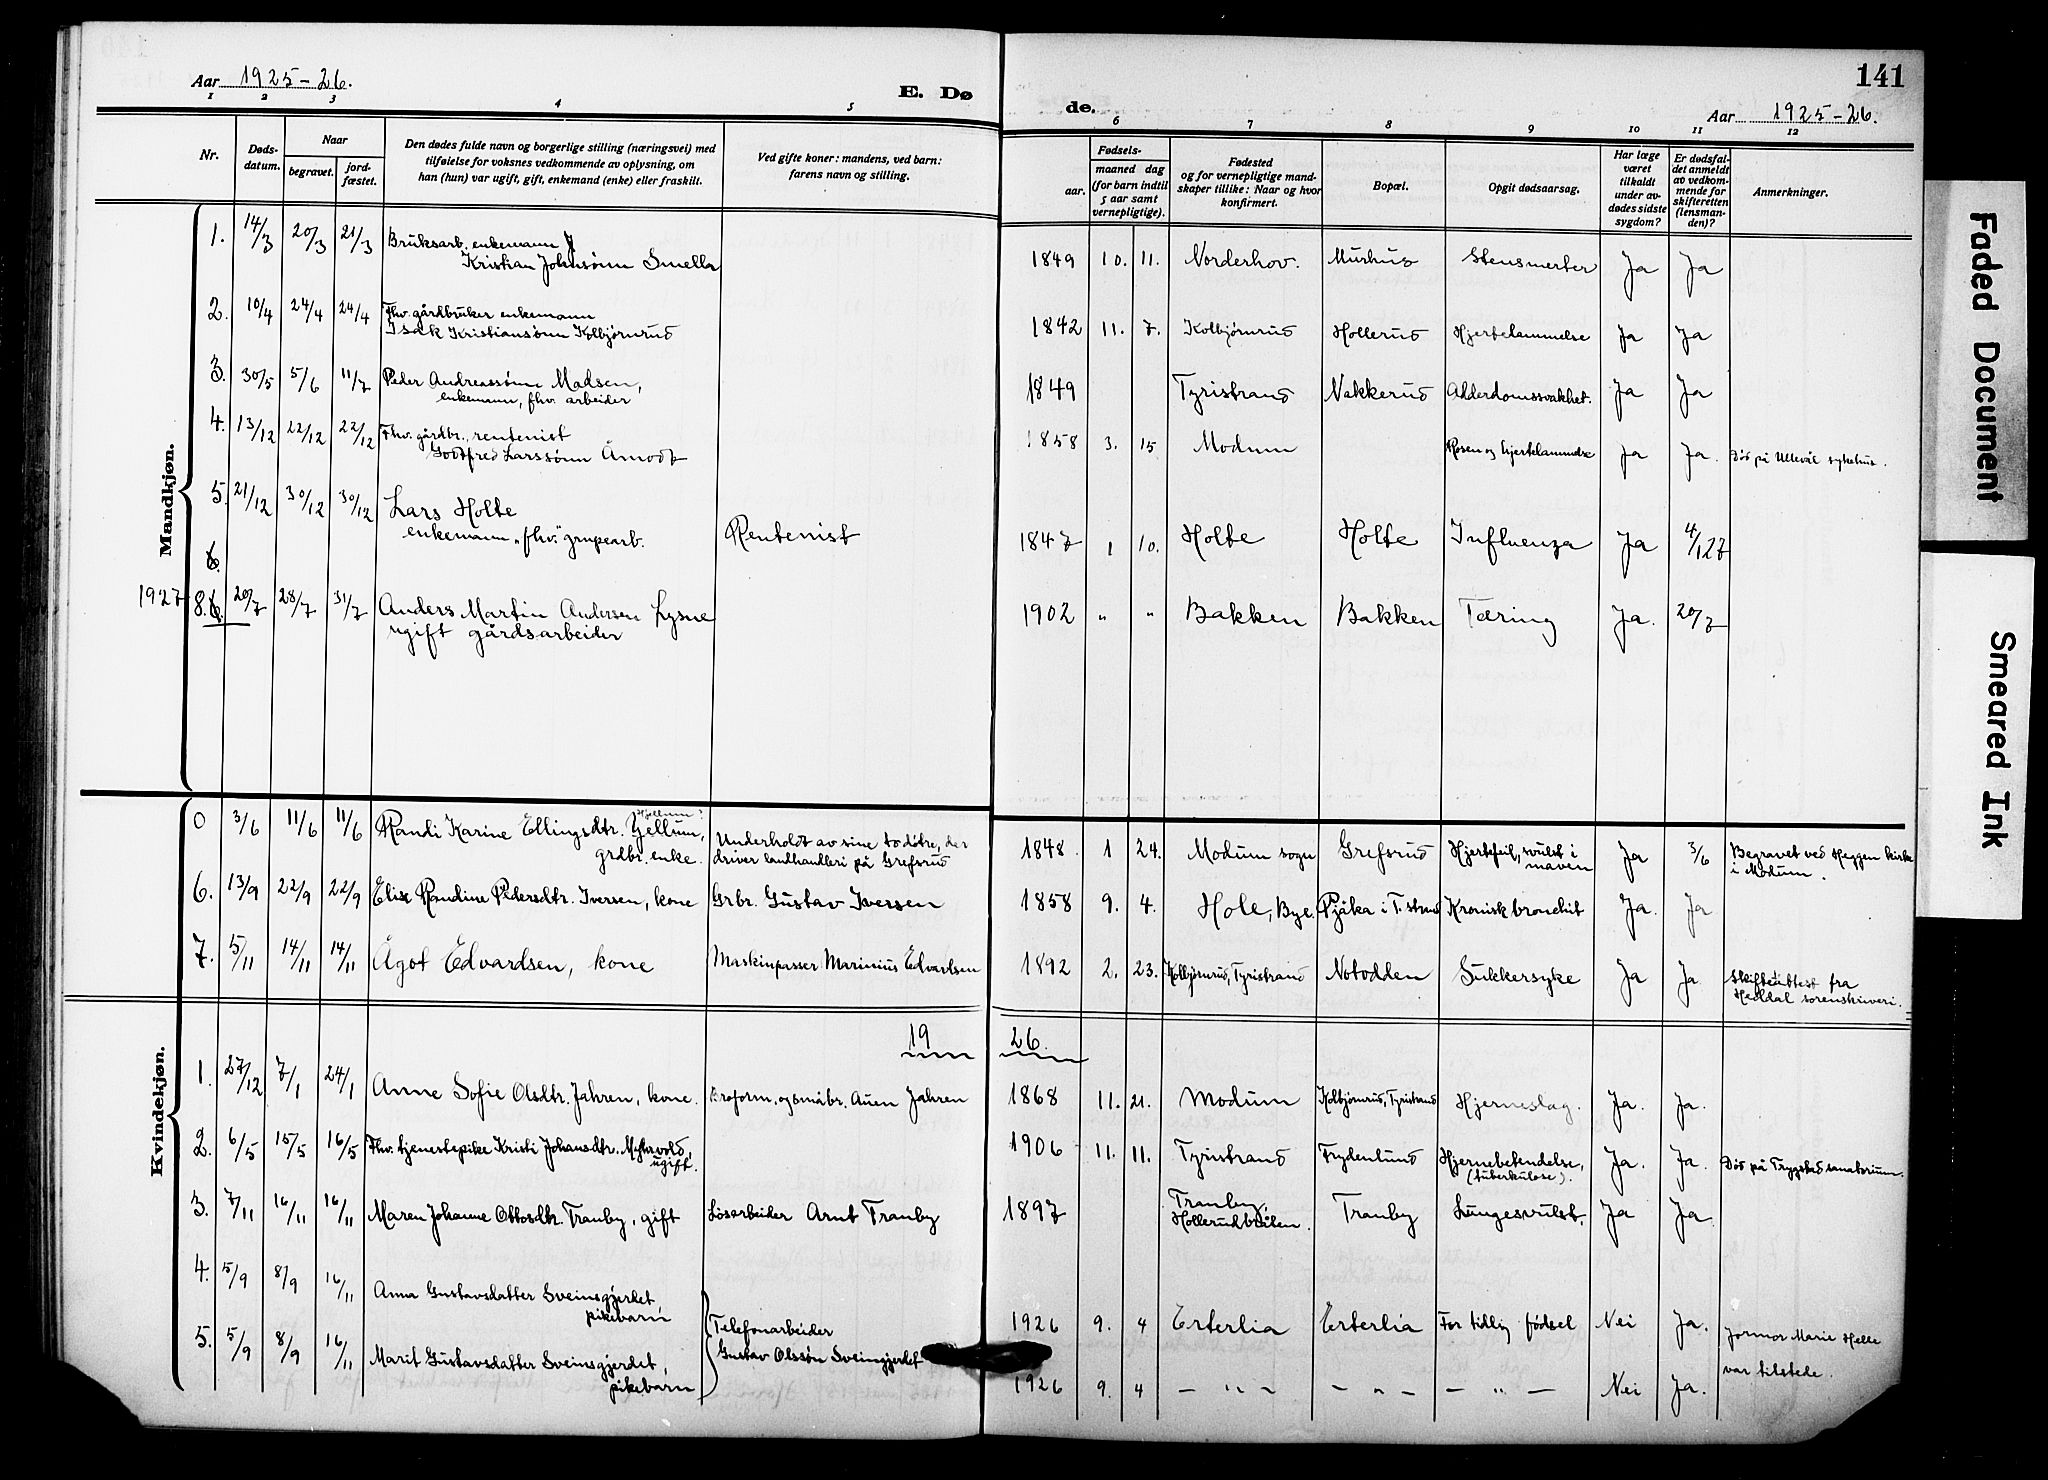 Aar 1925-26.
E. Dø
de.
141
Aar 1925-26.
1 2 3 4 5 6 7 8 9 10 11 12
Nr.
Døds-
datum.
Naar
begravet.
jord-
fæstet.
Den dødes fulde navn og borgerlige stilling (næringsvei) med
tilføielse for voksnes vedkommende av oplysning, om
han (hun) var ugift, gift, enkemand (enke) eller fraskilt.
Ved gifte koner: mandens, ved barn:
farens navn og stilling.
Fødsels-
aar.
maaned dag
(for barn indtil
5 aar samt
vernepligtige).
Fødested
og for vernepligtige mand-
skaper tillike: Naar og hvor
konfirmert.
Bopæl.
Opgit dødsaarsag.
Har læge
været
tilkaldt
under av-
dødes sidste
sygdom?
Er dødsfal-
det anmeldt
av vedkom-
mende for
skifteretten
(lensman-
den)?
Anmerkninger.
Mandkjøn.
1. 14/3 20/3 21/3 Bruksarb. enkemann
Kristian Johnsønn Smella 1849 10. 11. Norderhov. Murhus Ja Ja
2. 10/4 24/4 24/4 Fhv. gårdbruker enkemann
Isak Kristiansønn Kolbjørnrud 1842 11. 7. Kolbjørnrud Hollerud Hjertelammelse Ja Ja
3. 30/5 5/6 11/7 Peder Andreassønn Madsen,
enkemann, fhv. arbeider 1849 Tyristrand Nakkerud Alderdomssvakhet. Ja Ja
4. 13/12 22/12 22/12 Fhv. gårdbr., rentenist
Godtfred Larssønn Åmodt 1858 3. 15 Modum Rosen og hjertelammelse Ja Ja. Død på Ullevål sykehus.
5. 21/12 30/12 30/12 Lars Holte
enkemann, fhv. grupearb. Rentenist 1847 1 10. Holte Holte Influenza Ja 4/1 27
6.
1927 8. 6. 20/7 28/7 31/7 Anders Martin Andersen Lysne
ugift gårdsarbeider 1902 " " Bakken Bakken Tæring Ja. 20/7
Kvindekjøn.
Hjellum?
0 3/6 11/6 11/6 Randi Karine Ellingsdtr. Gjellum,
grdbr. enke. Underholdt av sine to døtre, der
driver landhandleri på Grefsrud 1848 1 24. Modum sogn Grefsrud Hjertefeil, svulst i
maven Ja 3/6 Begravet ved Heggen kirke
i Modum.
6. 13/9 22/9 22/9 Elise Randine Pedersdtr. Iversen, kone Grbr. Gustav Iversen 1858 9. 4. Hole, Bye. Pjåka i T. strand Kronisk bronchit Ja. Ja
7. 5/11 14/11 14/11 Ågot Edvardsen, kone Maskinpasser Marinius Edvardsen 1892 2. 23. Kolbjørnrud, Tyristrand Notodden Sukkersyke Ja Ja Skifteattest fra
Heddal sorenskriveri.
19 26.
1. 27/12 7/1 24/1 Anne Sofie Olsdtr. Jahren, kone. Broform. og småbr. Auen Jahren 1868 11. 21. Modum Kolbjørnrud, Tyristrand Hjerneslag. Ja. Ja.
2. 6/5 15/5 16/5 Fhv. tjenestepike Kristi Johansdtr. Myhrvold,
ugift. 1906 11. 11. Tyristrand Frydenlund Hjernebetendelse,
(tuberkuløse). Ja. Ja. Død på Trygstad sanatorium.
3. 7/11 16/11 16/11 Maren Johanne Ottosdtr. Tranby, gift Løsarbeider Arnt Tranby 1897 Tranby,
Hollerudbråten. Tranby Lungesvulst. Ja Ja
4. 5/9 8/9 16/11 Anna Gustavsdatter Sveinsgjerdet,
pikebarn Telefonarbeider
Gustav Olssøn Sveingjerdet 1926 9. 4 Erterlia Erterlia For tidlig fødsel Nei Ja. Jormor Marie Helle
var tilstede.
5. 5/9 8/9 16/11 Marit Gustavsdatter Sveinsgjerdet,
pikebarn 1926 9. 4 – " – – " – – " – Nei Ja.
Faded Document
Smeared Ink